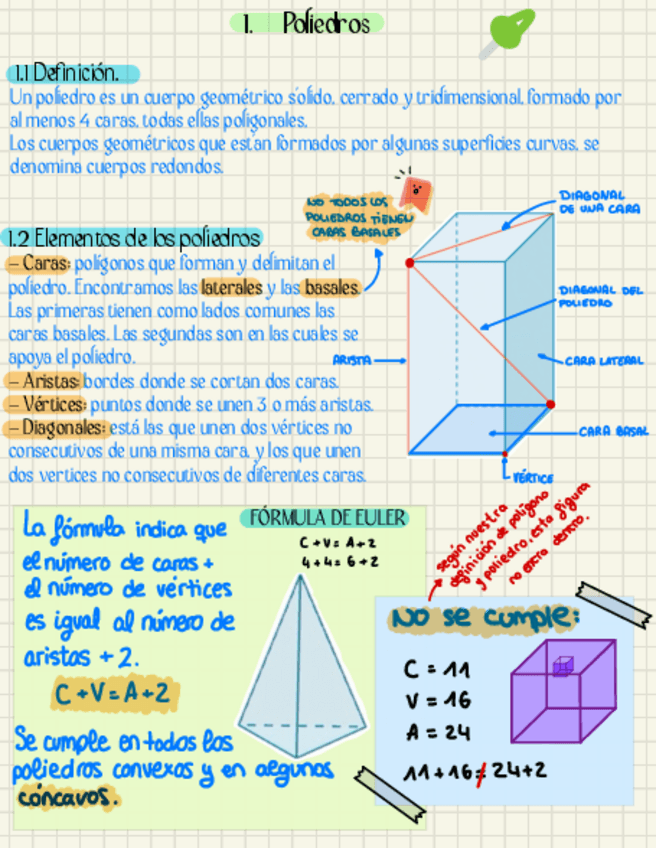 1. Poliedros
1.1 Definición.
Un poliedro es un cuerpo geométrico sólido, cerrado y tridimensional, formado por
al menos 4 caras, todas ellas poligonales.
Los cuerpos geométricos que están formados por algunas superficies curvas, se
denomina cuerpos redondos.
NO TODOS LOS
POLIEDROS TIENEN
CARAS BASALES
1.2 Elementos de los poliedros
- Caras: polígonos que forman y delimitan el
poliedro. Encontramos las laterales y las basales.
Las primeras tienen como lados comunes las
caras basales. Las segundas son en las cuales se
apoya el poliedro.
- Aristas: bordes donde se cortan dos caras.
- Vértices: puntos donde se unen 3 o más aristas.
- Diagonales: está las que unen dos vértices no
consecutivos de una misma cara, y los que unen
dos vertices no consecutivos de diferentes caras.
DIAGONAL
DE UNA CARA
DIAGONAL DEL
POLIEDRO
ARISTA
CARA LATERAL
CARA BASAL
VÉRTICE
La fórmula indica que
el número de caras +
el número de vértices
es igual al número de
aristas + 2.
C + V = A + 2
Se cumple en todos los
poliedros convexos y en algunos
cóncavos.
FÓRMULA DE EULER
C + V = A + 2
4 + 4 = 6 + 2
según nuestra
definición de polígono
y poliedro, esta figura
no entra dentro.
NO se cumple:
C = 11
V = 16
A = 24
11 + 16 ≠ 24 + 2